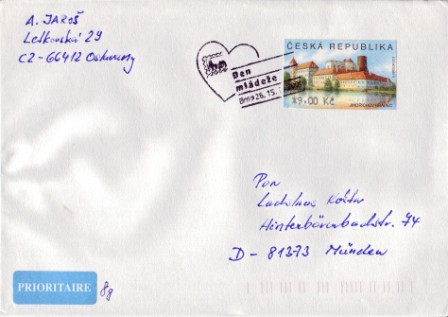 A. JAROŠ
Letkovská 29
CZ-66412 Oslavany
Den
mládeže
Brno 26. 15.
ČESKÁ REPUBLIKA
*9.00 Kč
Pan
Ladislaus
Hinterbärenbadstr. 74
D - 81373 München
PRIORITAIRE
8g